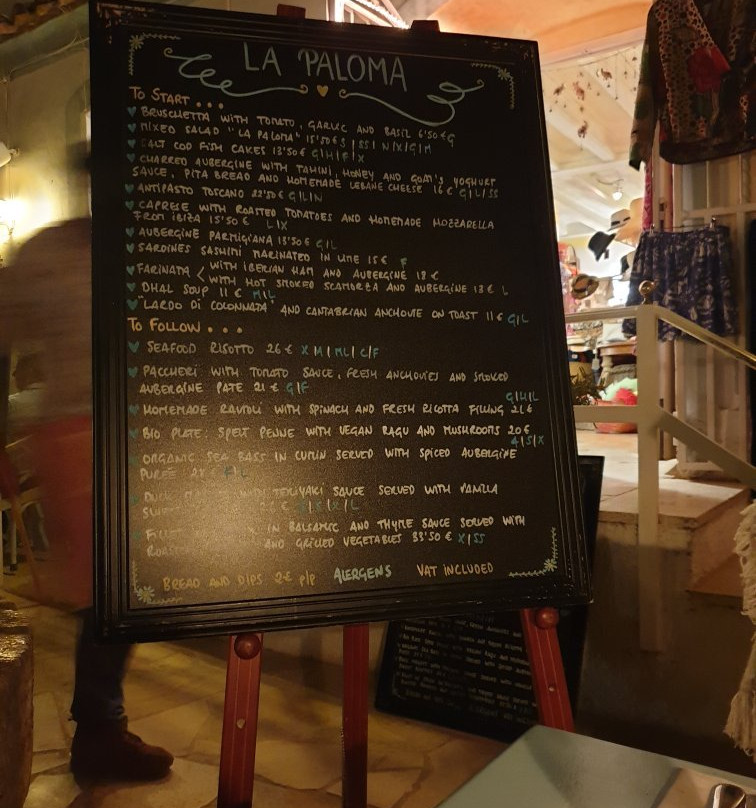 LA PALOMA
TO START...
BRUSCHETTA WITH TOMATO, GARLIC AND BASIL 6'50€ G
MIXED SALAD "LA PALOMA" 15'50€ S|SS|N|X|G|M
SALT COD FISH CAKES 13'50€ G|H|F|X
CHARRED AUBERGINE WITH TAHINI, HONEY AND GOAT'S YOGHURT
SAUCE, PITA BREAD AND HOMEMADE LEBANE CHEESE 16€ G|L|SS
ANTIPASTO TOSCANO 22'50€ G|L|N
CAPRESE WITH ROASTED TOMATOES AND HOMEMADE MOZZARELLA
FROM IBIZA 15'50€ L|X
AUBERGINE PARMIGIANA 15'50€ G|L
SARDINES SASHIMI MARINATED IN LIME 15€ F
FARINATA < WITH IBERIAN HAM AND AUBERGINE 18€
WITH HOT SMOKED SCAMORZA AND AUBERGINE 18€ L
DHAL SOUP 11€ M|L
"LARDO DI COLONNATA" AND CANTABRIAN ANCHOVIE ON TOAST 11€ G|L
TO FOLLOW...
SEAFOOD RISOTTO 26€ X|M|ML|C|F
PACCHERI WITH TOMATO SAUCE, FRESH ANCHOVIES AND SMOKED
AUBERGINE PATE 21€ G|F
G|H|L
HOMEMADE RAVIOLI WITH SPINACH AND FRESH RICOTTA FILLING 21€
BIO PLATE: SPELT PENNE WITH VEGAN RAGU AND MUSHROOMS 20€
G|S|X
ORGANIC SEA BASS IN CUMIN SERVED WITH SPICED AUBERGINE
PURÉE €
DUCK WITH TERIYAKI SAUCE SERVED WITH VANILLA
€
FILLET IN BALSAMIC AND THYME SAUCE SERVED WITH
AND GRILLED VEGETABLES 33'50€ X|SS
BREAD AND DIPS 2€ p/p ALERGENS VAT INCLUDED